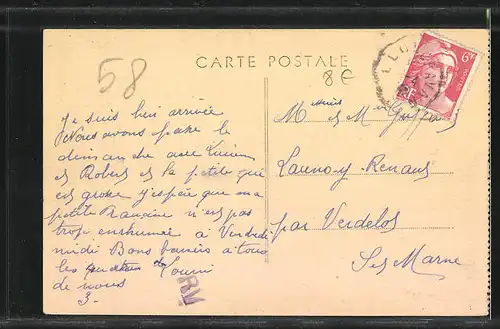 CARTE POSTALE
58
8 €
6F
RF
Je suis bien arrivée
Nous avons passé le
dimanche avec Lucien
et Robert et la petite qui
est grosse j'espère que ma
petite Francine n'est pas
trop enrhumée à Vendredi
midi Bons baisers à tous
les
de nous
3.
RM
M et M
Launoy-Renaut
par Verdelot
Ses Marne